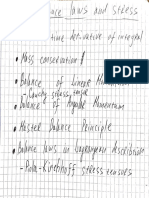 ance laws and stress
time derivative of integral
• Mass conservation!
• Balance of Linear Momentum
- Cauchy stress tensor
• Balance of Angular Momentum
• Master Balance Principle
• Balance laws in Lagrangean describtion
- Piola-Kirchhoff stress tensors